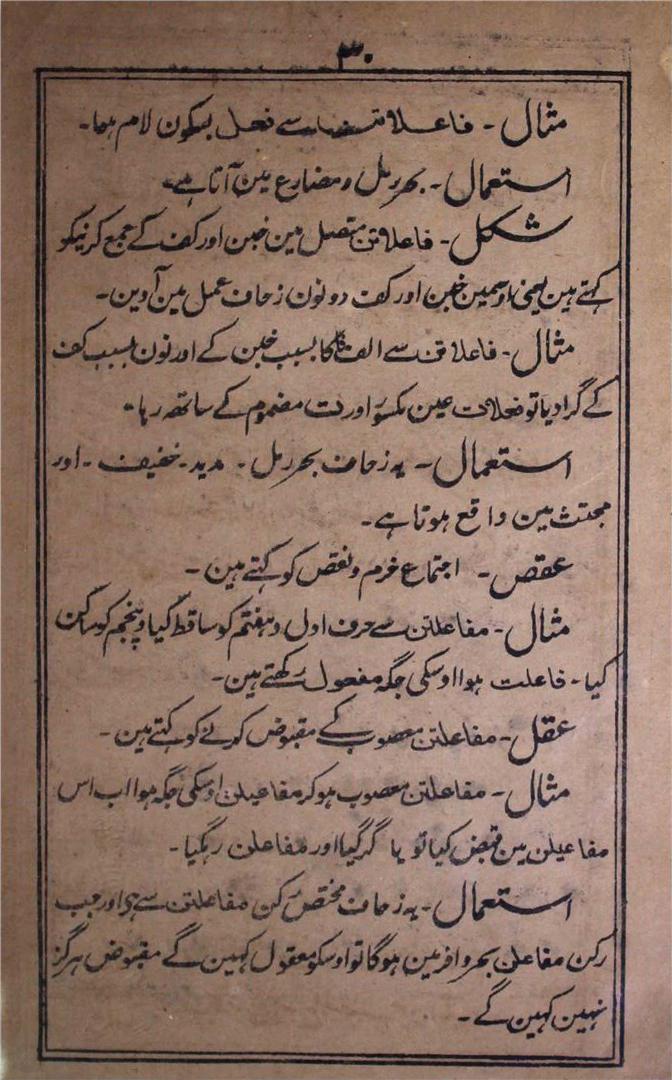 ۳۰
مثال - فاعلاتن سے فعل بسکون لام ہوا -
استعمال - بحر رمل و مضارع مین آتا ہے -
شکل - فاعلاتن متصل مین خبن اور کف کے جمع کرنیکو
کہتے ہین یعنی اوسمین خبن اور کف دونون زحاف عمل مین آوین -
مثال - فاعلاتن سے الف فا کا بسبب خبن کے اور نون بسبب کف
کے گرا دیا تو فعلات عین مکسور اور ت مضموم کے ساتھ رہا -
استعمال - یہ زحاف بحر رمل - مدید - خفیف - اور
مجتث مین واقع ہوتا ہے -
عقص - اجتماع خرم و نقص کو کہتے ہین -
مثال - مفاعلتن سے حرف اول و ہفتم کو ساقط کیا و پنجم کو ساکن
کیا - فاعلت ہوا اوسکی جگہ مفعول رکھتے ہین -
عقل - مفاعلتن معصوب کے مقبوض کرنے کو کہتے ہین -
مثال - مفاعلتن معصوب ہو کر مفاعیلن اوسکی جگہ ہوا اب اس
مفاعیلن مین قبض کیا تو یا گر گیا اور مفاعلن رہگیا -
استعمال - یہ زحاف مختص رکن مفاعلتن سے ہی اور جب
رکن مفاعلن بحر وافر مین ہوگا تو اوسکو معقول کہین گے مقبوض ہرگز
نہین کہین گے -